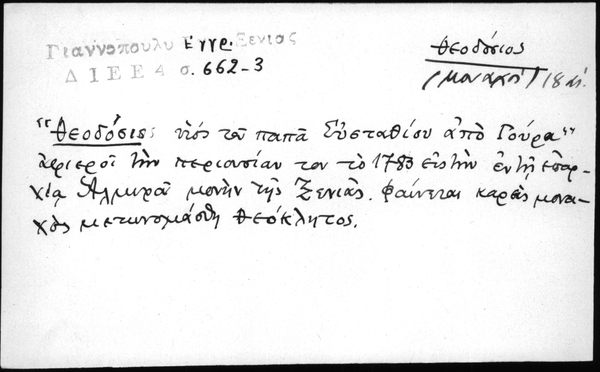 Γιαννοπουλυ Εγγρ. Ξενιας
ΔΙΕΕ 4 σ. 662-3
Θεοδόσιος
(μοναχός) 18 αἰ.
"Θεοδόσιος υἱός τοῦ παπᾶ Εὐσταθίου ἀπὸ Γούρα"
ἀφιεροῖ τὴν περιουσίαν του τὸ 1783 εἰς τὴν ἐν τῇ ἐπαρ-
χίᾳ Ἁλμυροῦ μονὴν τῆς Ξενιᾶς. Φαίνεται καρεὶς μονα-
χὸς μετωνομάσθη Θεόκλητος.